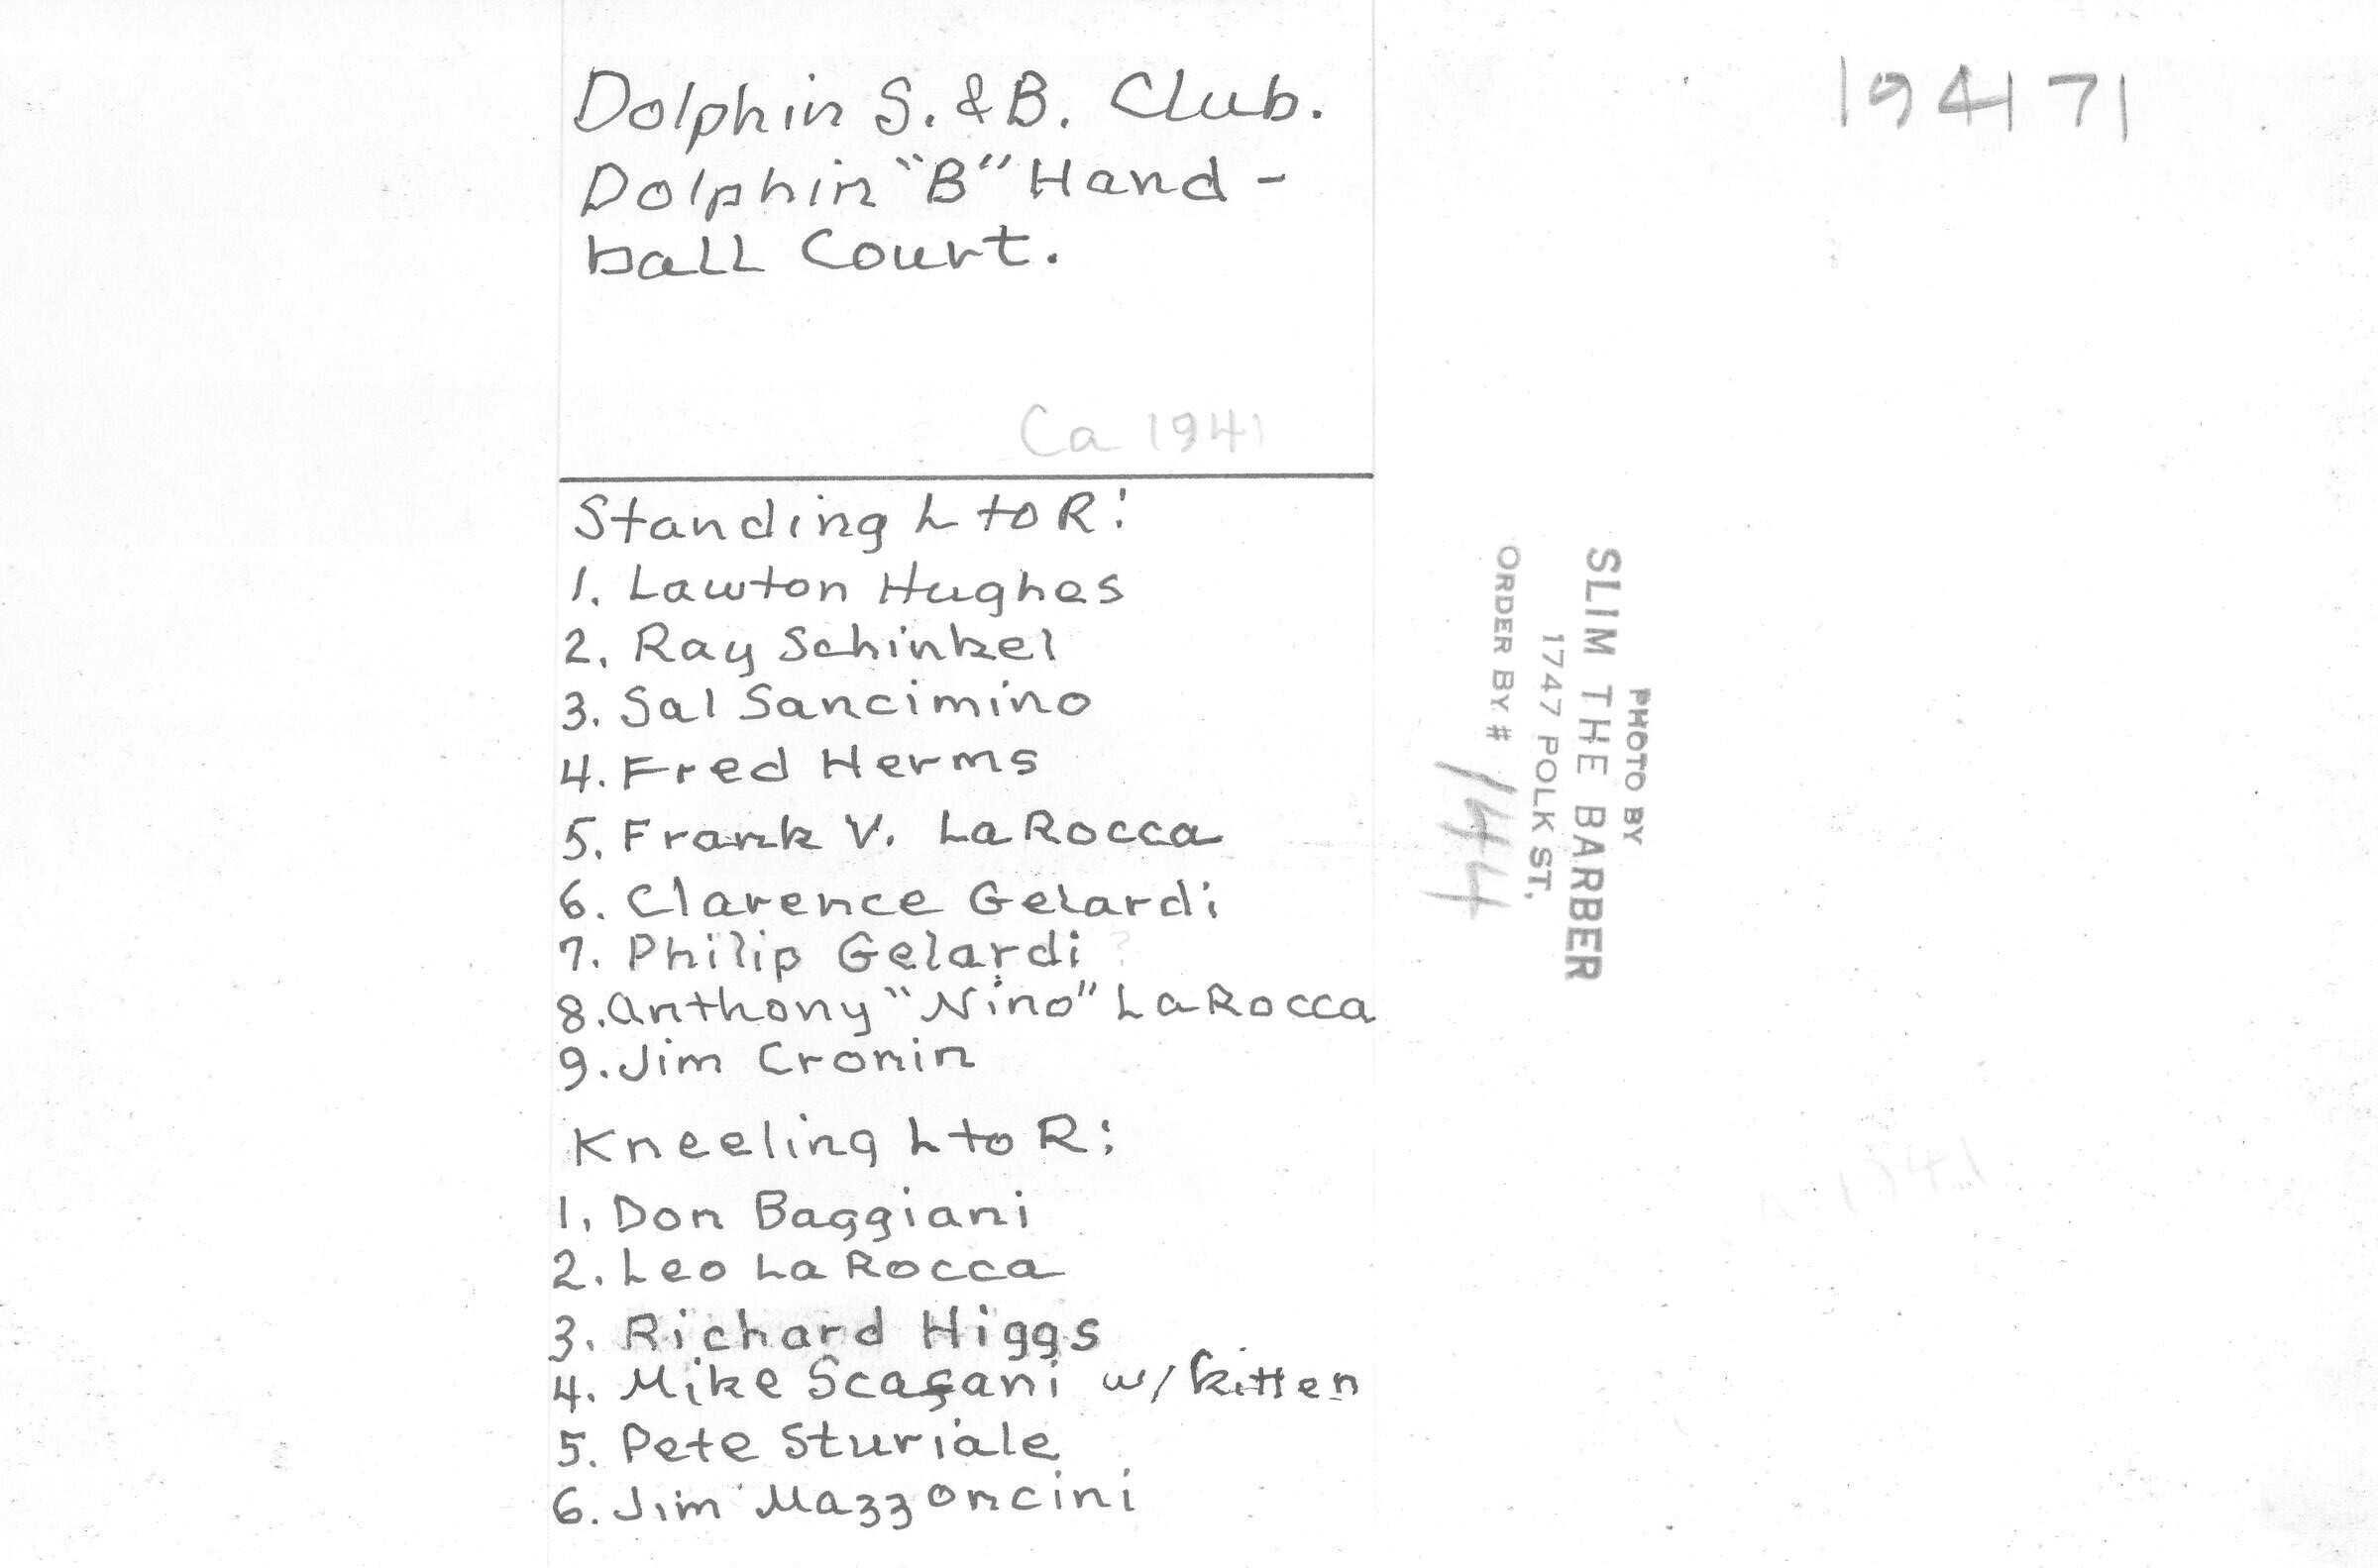 Dolphin S. & B. Club.
Dolphin "B" Hand-
ball Court.
Ca 1941
Standing L to R:
1. Lawton Hughes
2. Ray Schinkel
3. Sal Sancimino
4. Fred Herms
5. Frank V. LaRocca
6. Clarence Gelardi
7. Philip Gelardi ?
8. Anthony "Nino" LaRocca
9. Jim Cronin
Kneeling L to R:
1. Don Baggiani
2. Leo LaRocca
3. Richard Higgs
4. Mike w/ kitten
5. Pete Sturiale
6. Jim Mazzoncini
194171
PHOTO BY
SLIM THE BARBER
1747 POLK ST.
ORDER BY # 144
1941